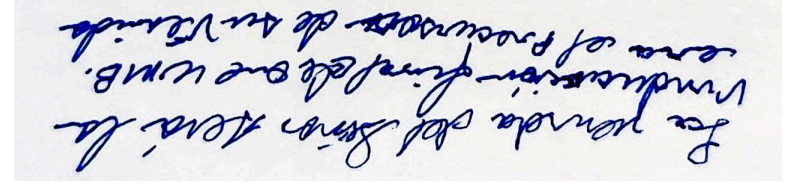 La venida del Señor será la
Vindicación final de que WMB.
era el Precursor de su Venida